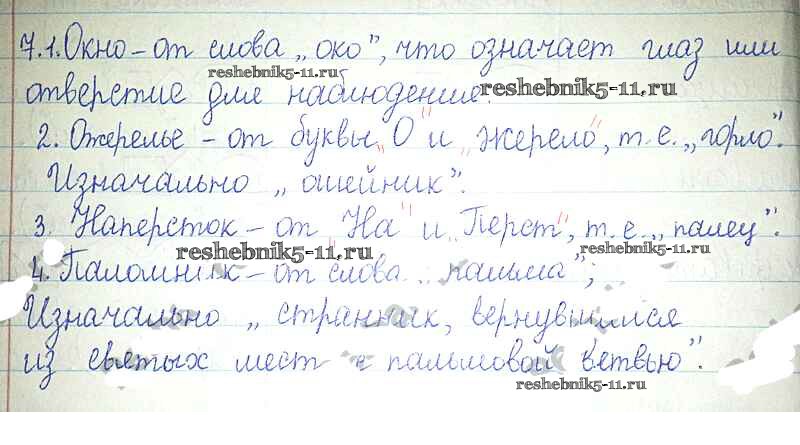 7.1. Окно – от слова „око", что означает глаз или
reshebnik5-11.ru
отверстие для наблюдения.
reshebnik5-11.ru
2. Ожерелье – от буквы „О" и „жерело", т.е. „горло".
Изначально „ошейник".
3. Наперсток – от „На" и „Перст", т.е. „палец".
reshebnik5-11.ru
reshebnik5-11.ru
4. Паломник – от слова „пальма";
Изначально „странник, вернувшийся
из святых мест с пальмовой ветвью".
reshebnik5-11.ru